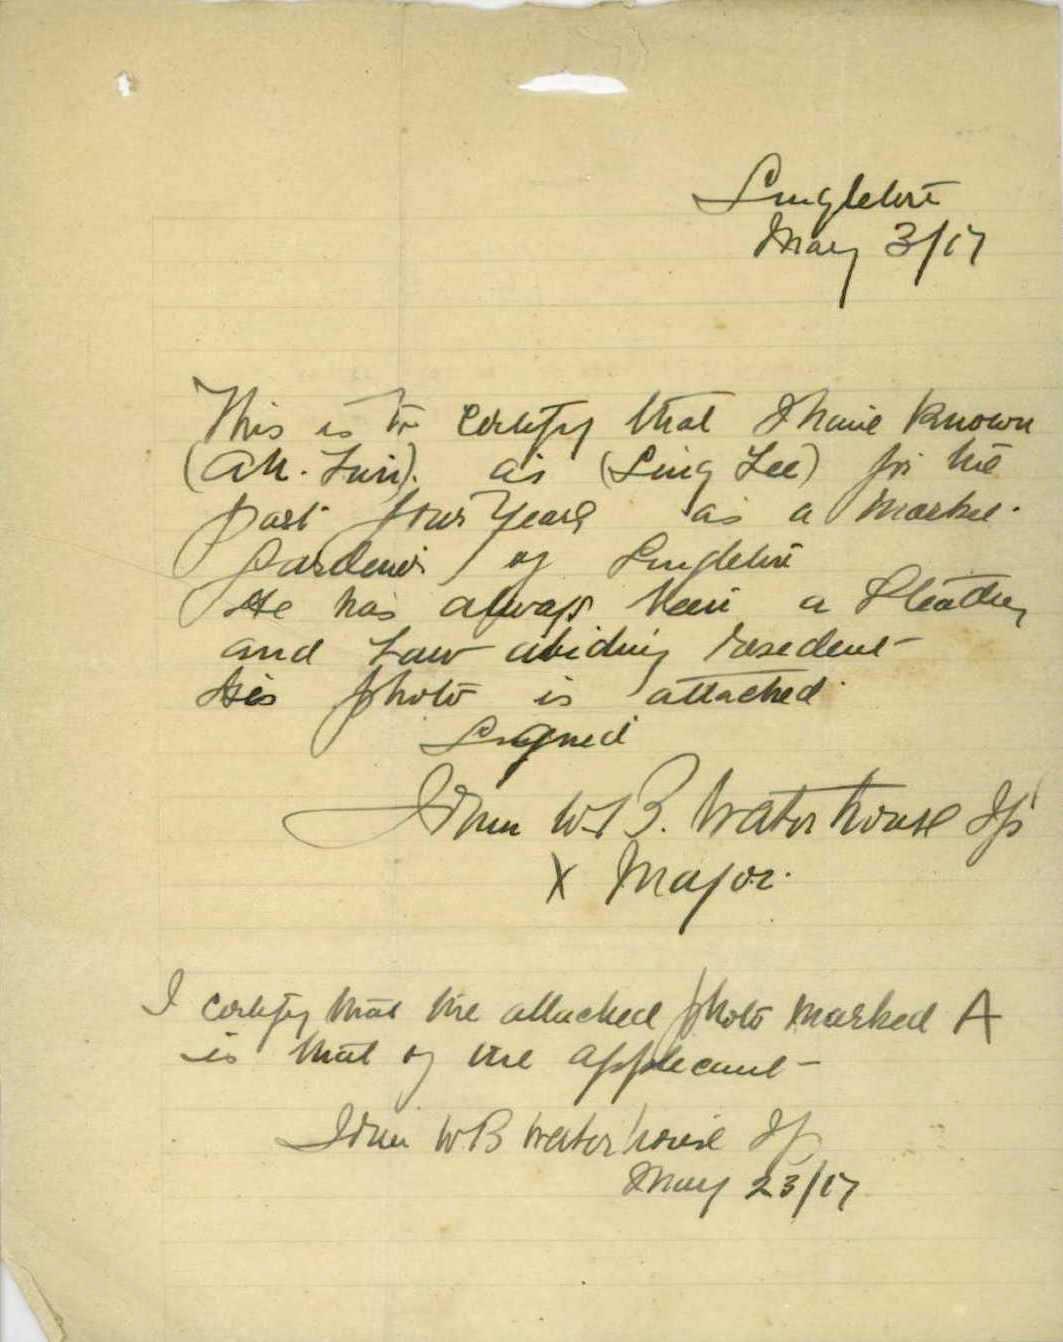 Singleton
May 3/17
This is to certify that I have known
(Ah. Lin). as (Sing Lee) for the
past four Years as a Market.
Gardener of Singleton
He has always been a Steady
and Law abiding resedent
His photo is attached
Signed
John W B. Waterhouse Jp
X Major.
I certify that the attached photo marked A
is that of the applicant
John W B Waterhouse Jp
May 23/17